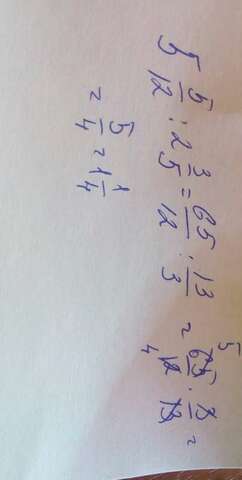 5 5/12 : 2 3/5 = 65/12 : 13/3 = 65/12 · 3/13 =
5
4
= 5/4 = 1 1/4